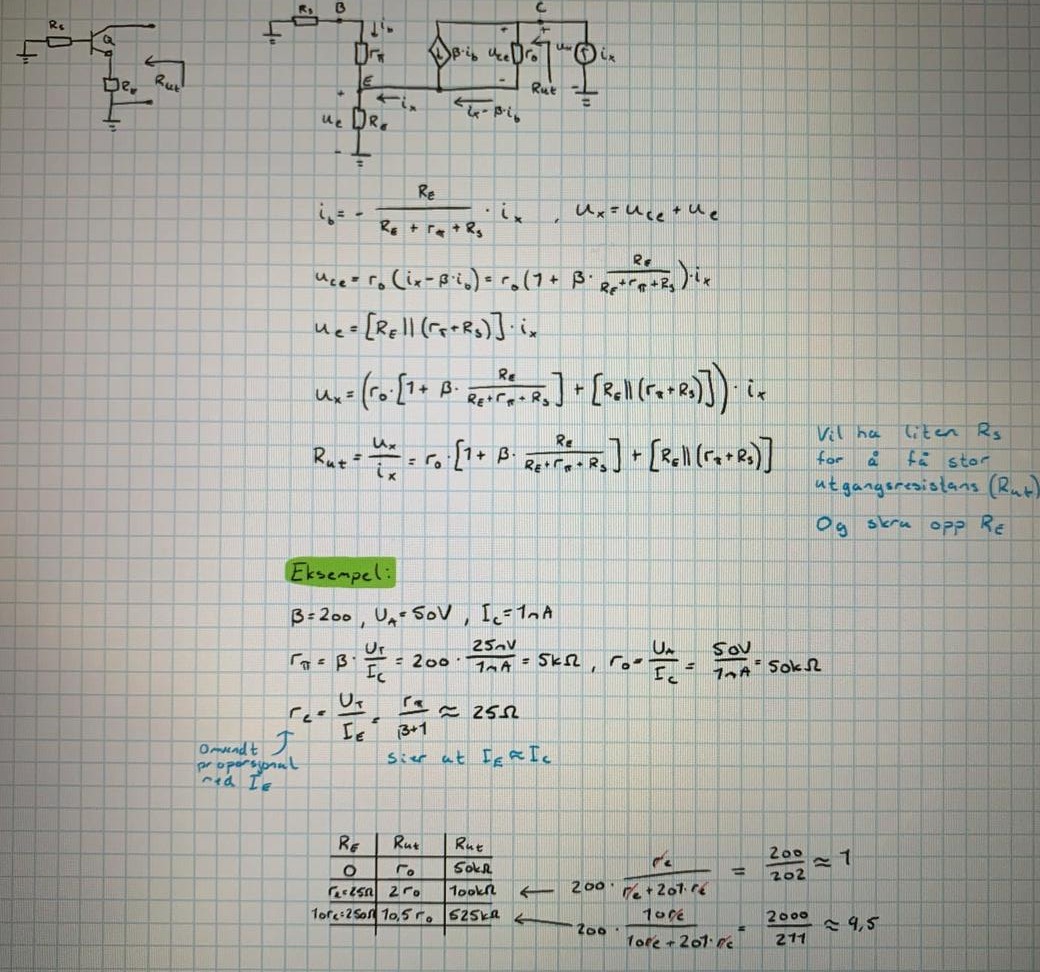 Rs B C
Rs Q ib rπ β·ib uce ro ux ix
E Rut
RE Rut ix ix-β·ib
ue RE
ib = - RE / (RE + rπ + Rs) · ix , ux = uce + ue
uce = ro (ix - β·ib) = ro (1 + β · RE / (RE + rπ + Rs)) · ix
ue = [RE || (rπ + Rs)] · ix
ux = (ro · [1 + β · RE / (RE + rπ + Rs)] + [RE || (rπ + Rs)]) · ix
Rut = ux / ix = ro · [1 + β · RE / (RE + rπ + Rs)] + [RE || (rπ + Rs)]
Vil ha liten Rs
for å få stor
utgangsresistans (Rut)
Og skru opp RE
Eksempel:
β = 200 , UA = 50V , Ic = 1mA
rπ = β · UT / Ic = 200 · 25mV / 1mA = 5kΩ , ro = UA / Ic = 50V / 1mA = 50kΩ
re = UT / IE = rπ / (β+1) ≈ 25Ω
Omvendt
proporsjonal
med IE
sier at IE ≈ Ic
RE Rut Rut
0 ro 50kΩ
re = 25Ω 2ro 100kΩ ← 200 · re / (re + 201·re) = 200 / 202 ≈ 1
10re = 250Ω 10,5 ro 525kΩ ← 200 · 10re / (10re + 201·re) = 2000 / 211 ≈ 9,5